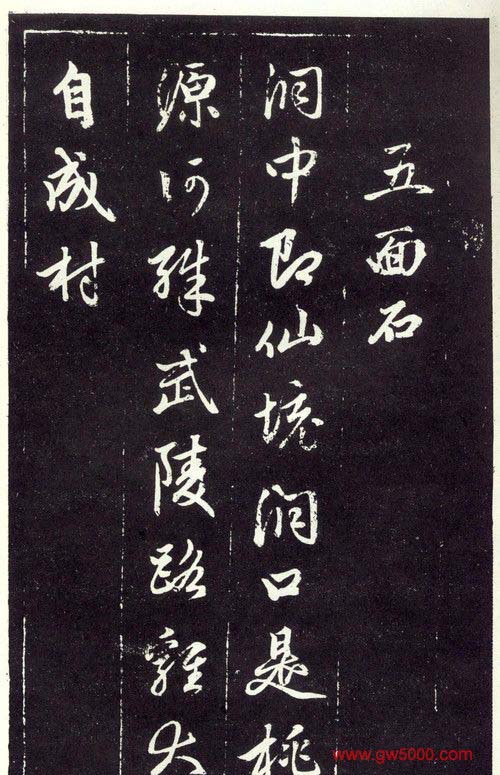 五面石
洞中即仙境洞口是桃
源何殊武陵路雞犬
自成村
www.gw5000.com